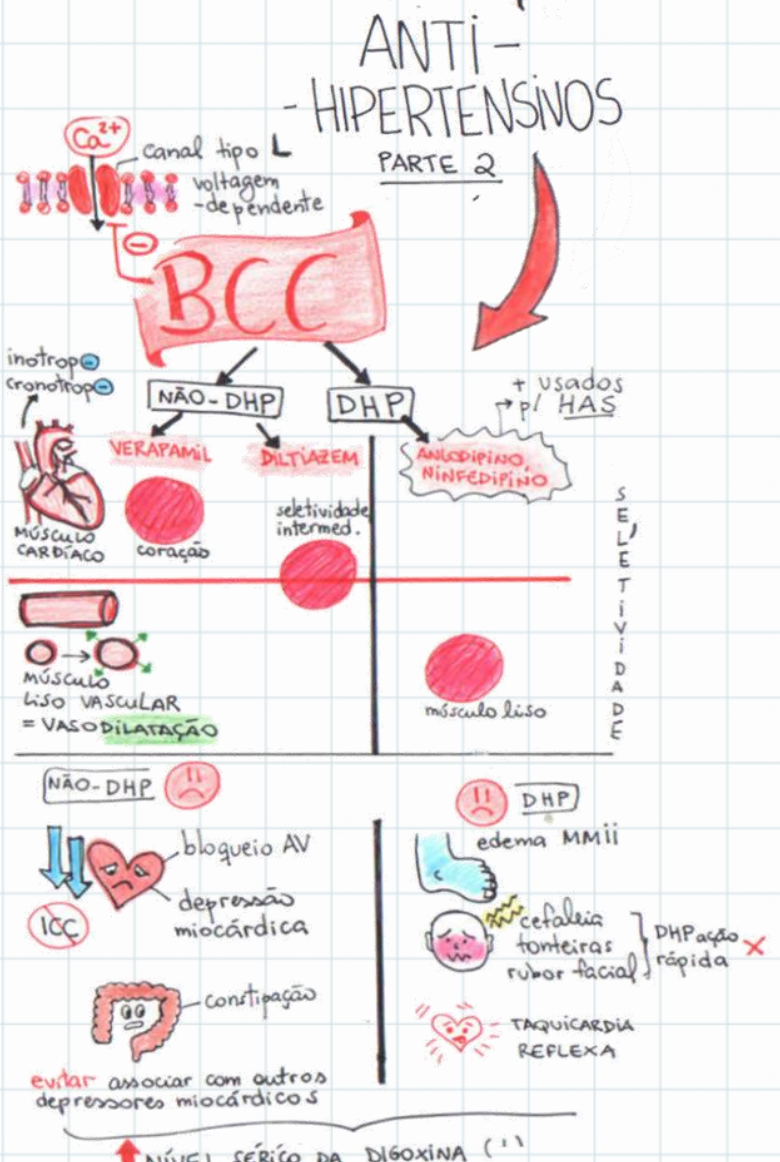 ANTI-
-HIPERTENSINOS
PARTE 2
Ca²⁺
canal tipo L
voltagem
-dependente
⊖
BCC
inotrop⊖
cronotrop⊖
NÃO-DHP
DHP
+ usados
p/ HAS
VERAPAMIL
DILTIAZEM
ANLODIPINO,
NINFEDIPINO
MÚSCULO
CARDÍACO
coração
seletividade
intermed.
SELETIVIDADE
MÚSCULO
LISO VASCULAR
= VASODILATAÇÃO
músculo liso
NÃO-DHP
DHP
bloqueio AV
depressão
miocárdica
ICC
constipação
evitar associar com outros
depressores miocárdicos
edema MMII
cefaleia
tonteiras
rubor facial
DHP ação
rápida X
TAQUICARDIA
REFLEXA
NÍVEL SÉRICO DA DIGOXINA (!)